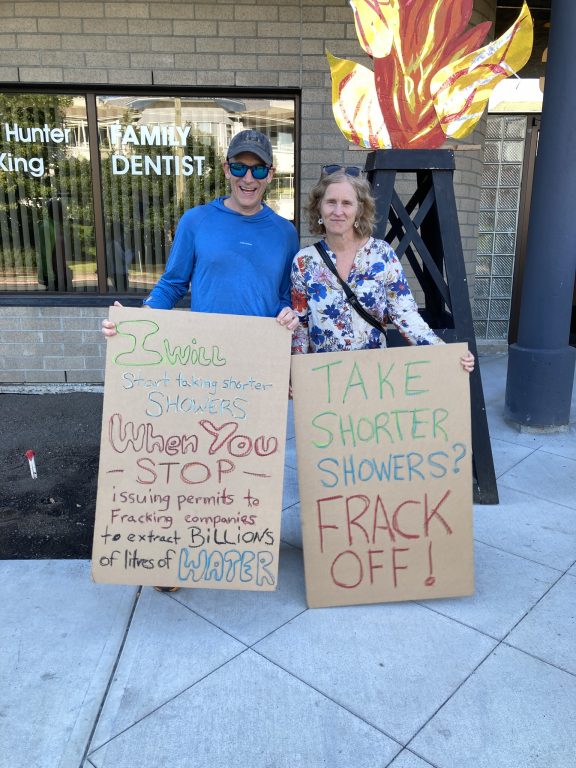 Hunter
King
FAMILY
DENTIST
I will
Start taking shorter
SHOWERS
When You
- STOP -
issuing permits to
Fracking companies
to extract BILLIONS
of litres of WATER
TAKE
SHORTER
SHOWERS?
FRACK
OFF!